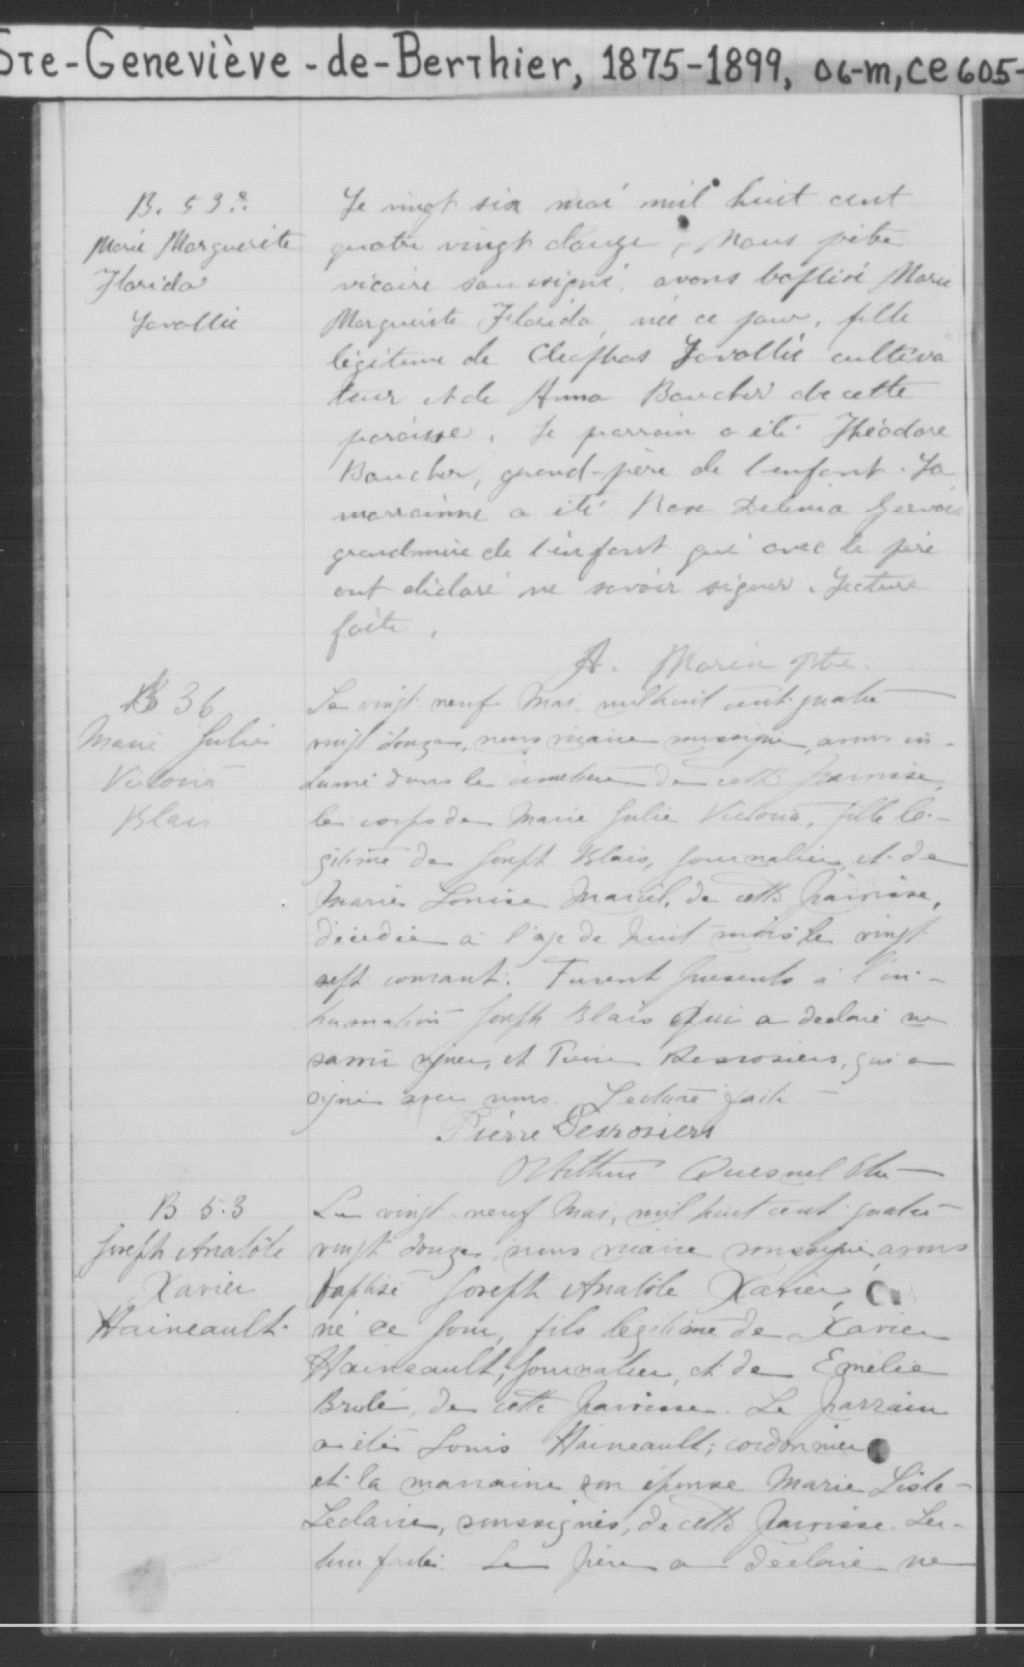 Ste-Geneviève-de-Berthier, 1875-1899, 06-m, ce605-
B. 53.
Marie Marguerite
Florida
Lavallée
Le vingt six mai mil huit cent
quatre vingt douze, nous ptre
vicaire soussigné avons baptisé Marie
Marguerite Florida, née ce jour, fille
légitime de Cleophas Lavallée cultiva
teur et de Anna Boucher de cette
paroisse. Le parrain a été Théodore
Boucher, grand-père de l'enfant. La
marrainne a été Rose Délima Gervais
grandmère de l'enfant qui avec le père
ont déclaré ne savoir signer. Lecture
faite.
A. Marin ptre.
36
Marie Julie
Victoria
Blais
Le vingt neuf Mai, mil huit cent quatre
vingt douze, nous vicaire soussigné, avons in-
humé dans le cimetière de cette paroisse,
le corps de Marie Julie Victoria, fille lé-
gitime de Joseph Blais, journalier, et de
Marie Louise Marcil, de cette paroisse,
décédée à l'age de huit mois le vingt
sept courant. Furent présents à l'in-
humation Joseph Blais qui a declaré ne
savoir signer, et Pierre Desrosiers, qui a
signé avec nous. Lecture faite
Pierre Desrosiers
Arthur Quesnel Ptre
B 53
Joseph Anatôle
Xavier
Haineault.
Le vingt-neuf Mai, mil huit cent quatre
vingt douze, nous vicaire soussigné, avons
baptisé Joseph Anatôle Xavier,
né ce jour, fils légitime de Xavier
Haineault, journalier, et de Emélie
Brulé, de cette paroisse. Le parrain
a été Louis Haineault, cordonnier
et la marraine son épouse Marie Liste-
Leclaire, soussignés, de cette paroisse. Lec-
ture faite. Le père a déclaré ne